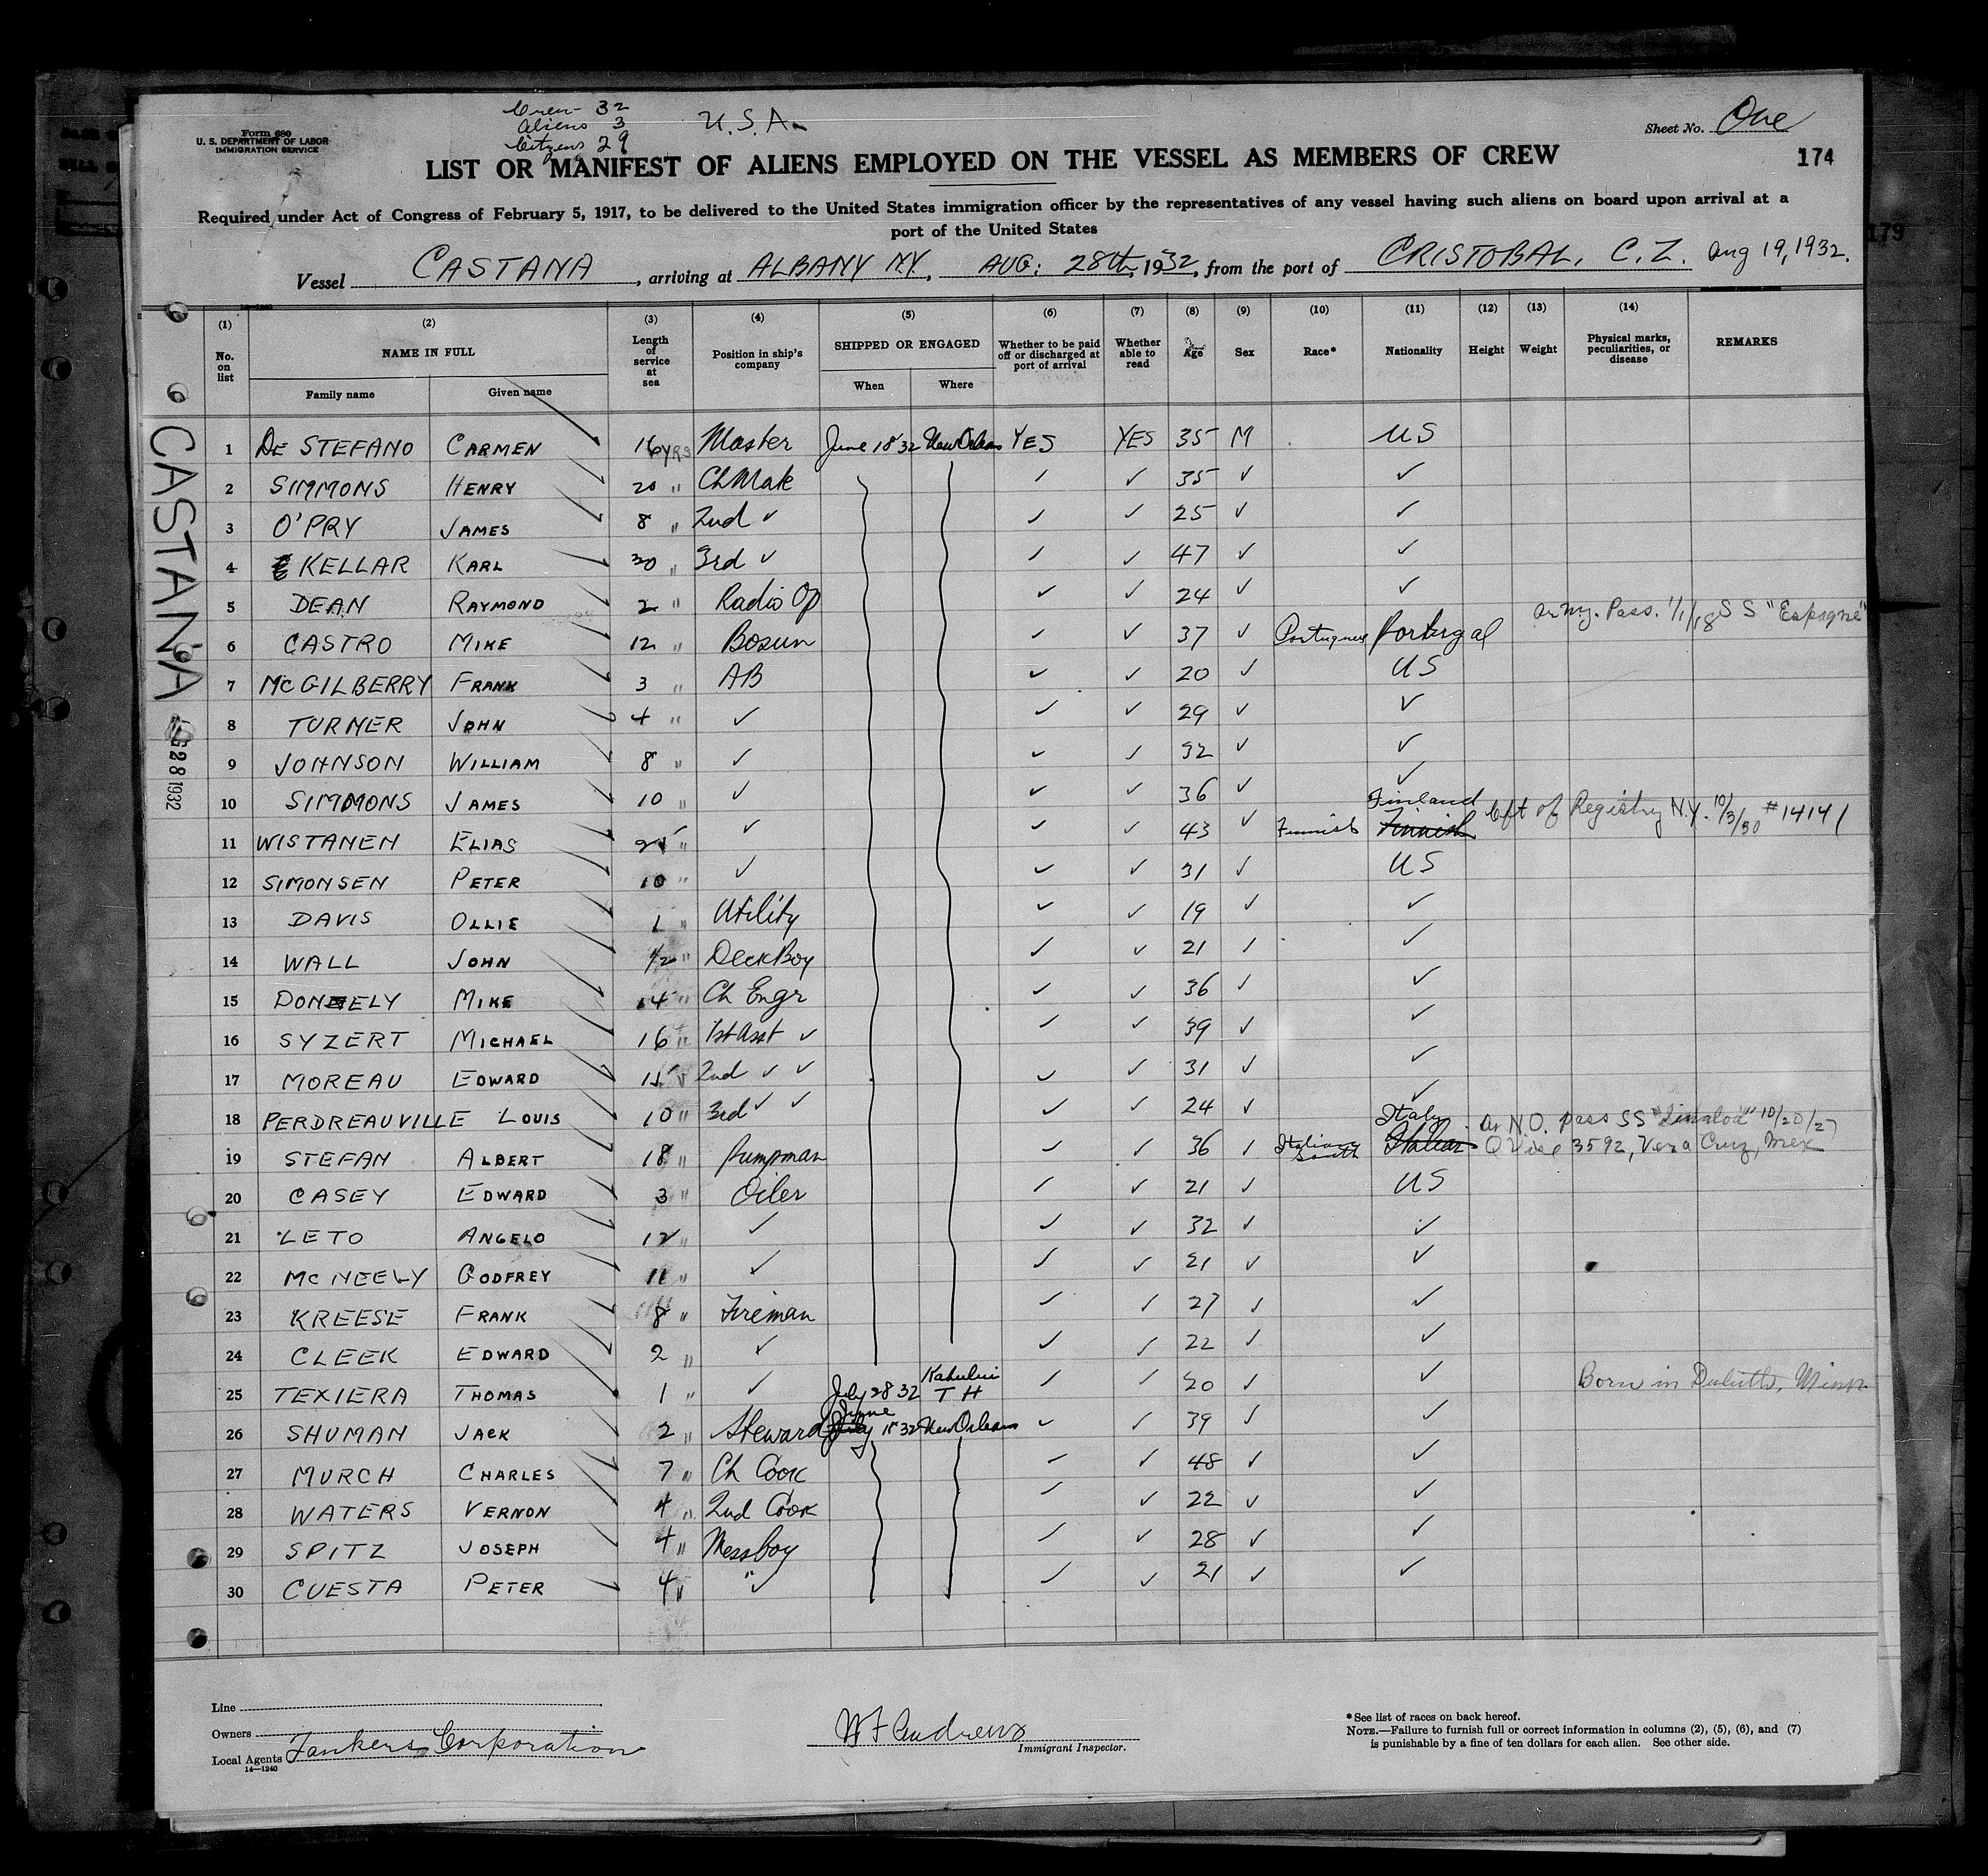 Form 680
U. S. DEPARTMENT OF LABOR
IMMIGRATION SERVICE
Crew - 32
Aliens 3
Citizens 29
U.S.A.
Sheet No. One
LIST OR MANIFEST OF ALIENS EMPLOYED ON THE VESSEL AS MEMBERS OF CREW
174
Required under Act of Congress of February 5, 1917, to be delivered to the United States immigration officer by the representatives of any vessel having such aliens on board upon arrival at a
port of the United States
179
Vessel CASTANA, arriving at ALBANY N.Y., AUG: 28th, 1932, from the port of CRISTOBAL, C.Z. Aug 19, 1932.
(1) (2) (3) (4) (5) (6) (7) (8) (9) (10) (11) (12) (13) (14)
No. on list NAME IN FULL Family name Given name Length of service at sea Position in ship's company SHIPPED OR ENGAGED When Where Whether to be paid off or discharged at port of arrival Whether able to read Age Sex Race* Nationality Height Weight Physical marks, peculiarities, or disease REMARKS
CASTANA
28 1932
1 DE STEFANO CARMEN 16 YRS Master June 18 32 New Orleans YES YES 35 M US
2 SIMMONS HENRY 20 " Ch Mate ✓ ✓ 35 ✓ ✓
3 O'PRY JAMES 8 " 2nd ✓ ✓ ✓ 25 ✓ ✓
4 KELLAR KARL 30 " 3rd ✓ ✓ ✓ 47 ✓ ✓
5 DEAN RAYMOND 2 " Radio Op ✓ ✓ 24 ✓ ✓
6 CASTRO MIKE 12 " Bosun ✓ ✓ 37 ✓ Portuguese Portugal Ar Ny. Pass. 1/1/18 SS "Espagne"
7 McGILBERRY FRANK 3 " AB ✓ ✓ 20 ✓ US
8 TURNER JOHN 4 " ✓ ✓ ✓ 29 ✓ ✓
9 JOHNSON WILLIAM 8 " ✓ ✓ ✓ 32 ✓ ✓
10 SIMMONS JAMES 10 " ✓ ✓ ✓ 36 ✓ ✓
11 WISTANEN ELIAS " ✓ ✓ ✓ 43 ✓ Finnish Finnish Finland Cft of Registry N.Y. 10/3/30 #14141
12 SIMONSEN PETER 10 " ✓ ✓ ✓ 31 ✓ US
13 DAVIS OLLIE 1 " Utility ✓ ✓ 19 ✓ ✓
14 WALL JOHN 1/2 " Deck Boy ✓ ✓ 21 ✓ ✓
15 DONNELY MIKE 14 " Ch Engr ✓ ✓ 36 ✓ ✓
16 SYZERT MICHAEL 16 " 1st Asst ✓ ✓ ✓ 39 ✓ ✓
17 MOREAU EDWARD " 2nd ✓ ✓ ✓ ✓ 31 ✓ ✓
18 PERDREAUVILLE LOUIS 10 " 3rd ✓ ✓ ✓ ✓ 24 ✓ ✓
19 STEFAN ALBERT 18 " Pumpman ✓ ✓ 36 ✓ Italian South Italian Italy Ar N.O. pass SS "Sinaloa" 10/20/27
Q Vise 3592, Vera Cruz, Mex
20 CASEY EDWARD 3 " Oiler ✓ ✓ 21 ✓ US
21 LETO ANGELO 12 " ✓ ✓ ✓ 32 ✓ ✓
22 McNEELY GODFREY 11 " ✓ ✓ ✓ 21 ✓ ✓
23 KREESE FRANK 8 " Fireman ✓ ✓ 27 ✓ ✓
24 CLEEK EDWARD 2 " ✓ ✓ ✓ 22 ✓ ✓
25 TEXIERA THOMAS 1 " ✓ July 28 32 Kahului T H ✓ ✓ 20 ✓ ✓ Born in Duluth, Minn
26 SHUMAN JACK 2 " Steward July June 18 32 New Orleans ✓ ✓ 39 ✓ ✓
27 MURCH CHARLES 7 " Ch Cook ✓ ✓ 48 ✓ ✓
28 WATERS VERNON 4 " 2nd Cook ✓ ✓ 22 ✓ ✓
29 SPITZ JOSEPH 4 " Mess Boy ✓ ✓ 28 ✓ ✓
30 CUESTA PETER 4 " " ✓ ✓ ✓ 21 ✓ ✓
Line
Owners
Local Agents Tankers Corporation
14—1240
W F Andrews
Immigrant Inspector.
*See list of races on back hereof.
NOTE.—Failure to furnish full or correct information in columns (2), (5), (6), and (7)
is punishable by a fine of ten dollars for each alien. See other side.